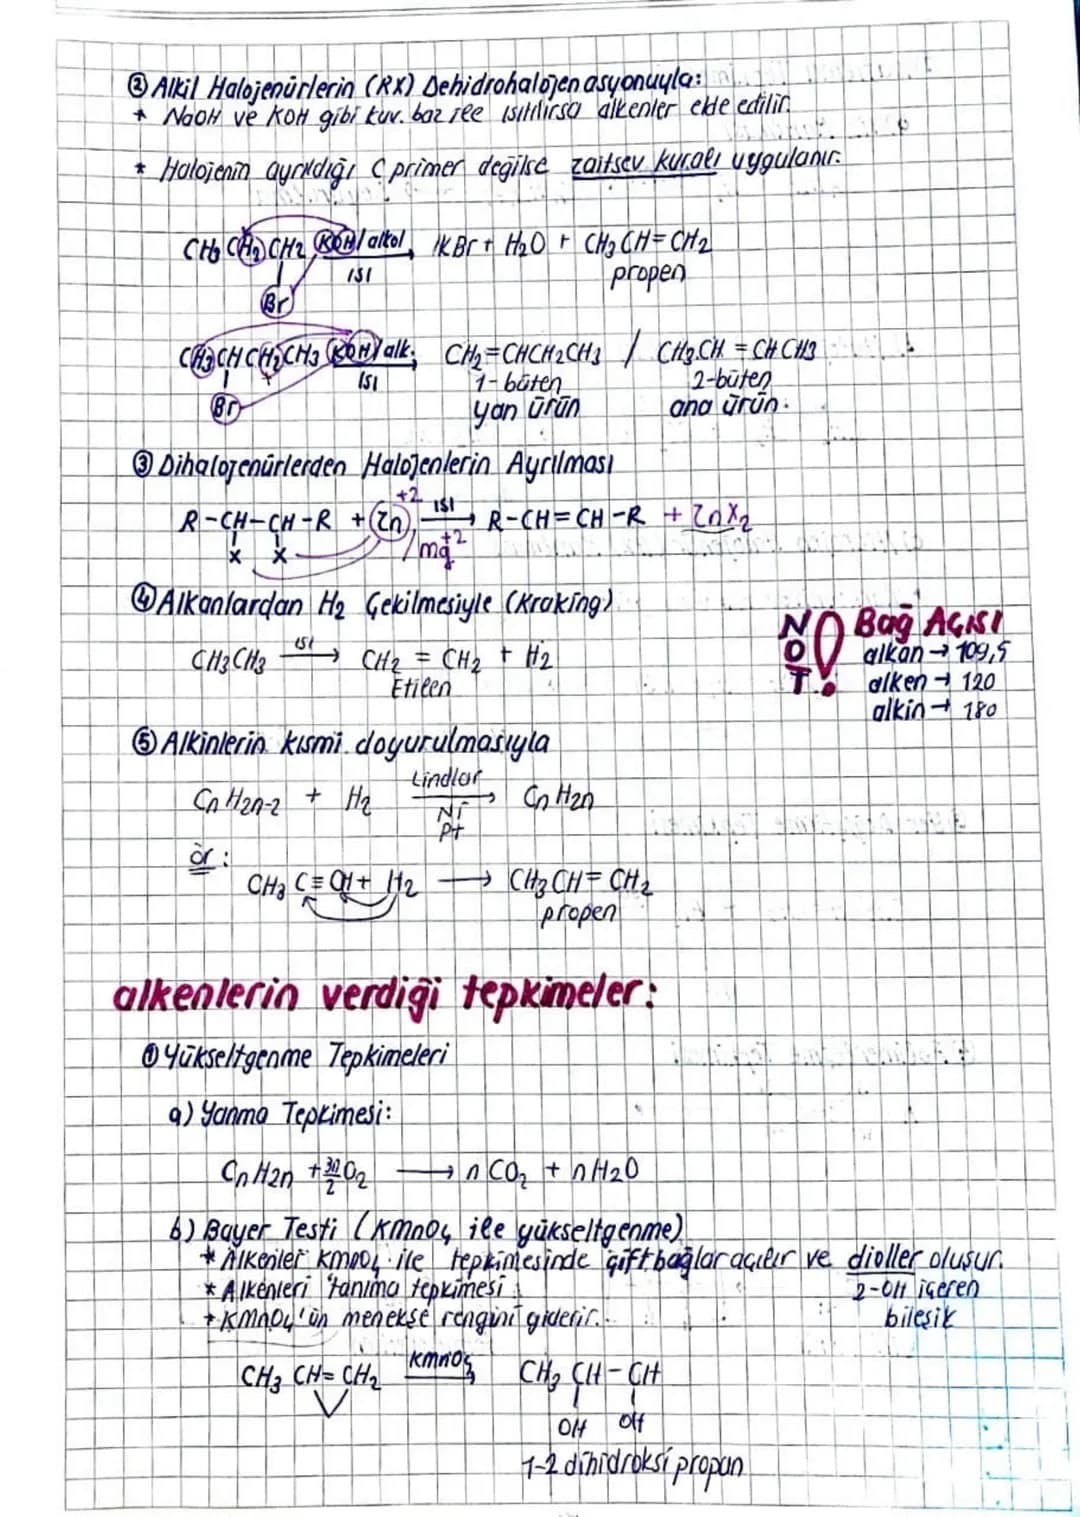 ② Alkil Halojenürlerin (RX) Dehidrohalojenasyonuyla:
* NaOH ve KOH gibi kuv. baz ile ısıtılırsa alkenler elde edilir.
* Halojenin ayrıldığı C primer değilse zaitsev kuralı uygulanır.
CH3 CH2 CH2 KOH/alkol ısı KBr + H2O + CH3 CH=CH2
Br
propen
CH3 CH CH2 CH3 KOH/alk. ısı CH2=CHCH2CH3 / CH3 CH = CH CH3
Br
1-büten 2-büten
yan ürün ana ürün.
③ Dihalojenürlerden Halojenlerin Ayrılması
R-CH-CH-R + Zn +2 ısı → R-CH=CH-R + ZnX2
X X /mg+2
④ Alkanlardan H2 Çekilmesiyle (Kraking)
CH3 CH3 ısı → CH2 = CH2 + H2
Etilen
NOT! Bağ Açısı
alkan → 109,5
alken → 120
alkin → 180
⑤ Alkinlerin kısmi doyurulmasıyla
CnH2n-2 + H2 Lindlar → CnH2n
Ni
Pt
ör:
CH3 C≡CH + H2 → CH3 CH=CH2
propen
alkenlerin verdiği tepkimeler:
① Yükseltgenme Tepkimeleri
a) Yanma Tepkimesi:
CnH2n + 3n/2 O2 → n CO2 + n H2O
b) Bayer Testi (KMnO4 ile yükseltgenme)
* Alkenler KMnO4 ile tepkimesinde çift bağlar açılır ve dioller oluşur.
2-OH içeren
bileşik
* Alkenleri tanıma tepkimesi
* KMnO4'ün menekşe rengini giderir.
CH3 CH=CH2 KMnO4 CH3 CH-CH
OH OH
1-2 dihidroksi propan